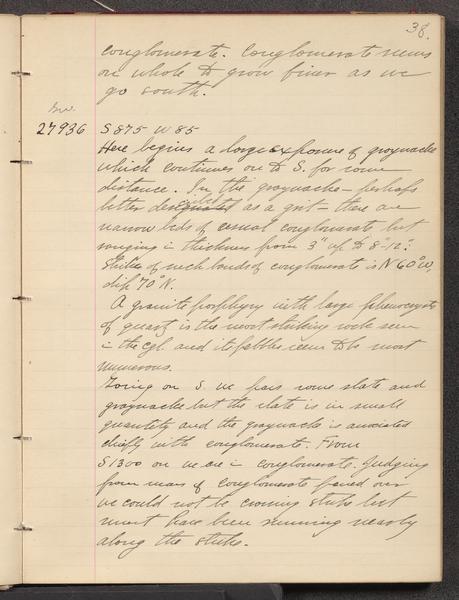 38.
conglomerate. Conglomerate seems
on whole to grow finer as we
go south.
27936 S 875 W 85
Here begins a large exposure of graywacke
which continues on to S. for some
distance. In the graywacke – perhaps
better described as a grit – there are
narrow beds of conglomerate but
ranging in thickness from 3" up to 8"-12".
Strike of such bands of conglomerate is N 60° W,
dip 70° N.
A granite porphyry with large phenocrysts
of quartz is the most striking rock seen
in the cgl. and its pebbles seem to be most
numerous.
Going on S we pass some slate and
graywacke but the slate is in small
quantity and the graywacke is associated
chiefly with conglomerate. From
S 1300 on we are in conglomerate. Judging
from mass of conglomerate passed over
we could not be crossing strike but
must have been running nearly
along the strike.